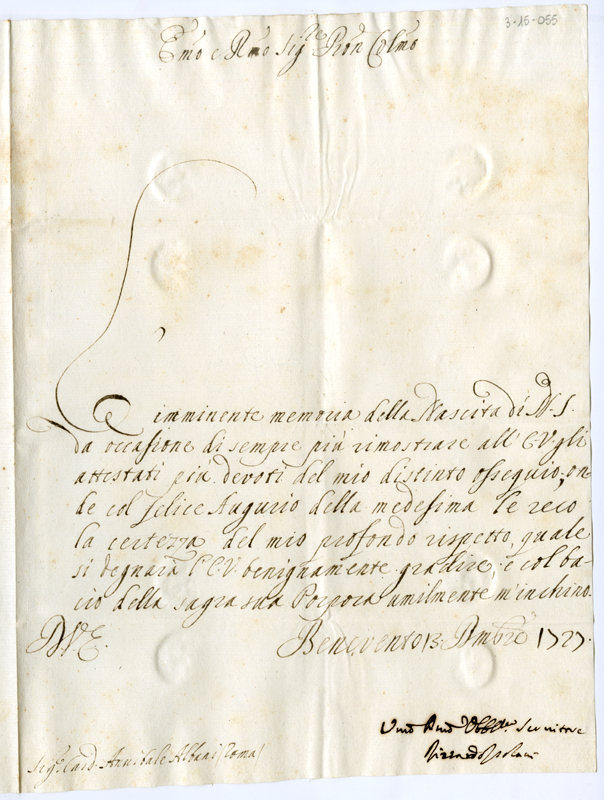 3-15-055
Emo e Rmo Sigre Pron Colmo
L'imminente memoria della Nascita di N. S.
da occasione di sempre più rimostrare all' E.V. gli
attestati più devoti del mio distinto ossequio; on
de col felice Augurio della medesima le reco
la certezza del mio profondo rispetto, quale
si degnarà l' E.V. benignamente gradire e col ba-
cio della sagra sua Porpora umilmente m'inchino.
D V. E.
Benevento 13. Xmbre 1727.
Umo Dmo Obblmo Servitore
Sigr Card. Annibale Albani (Roma)